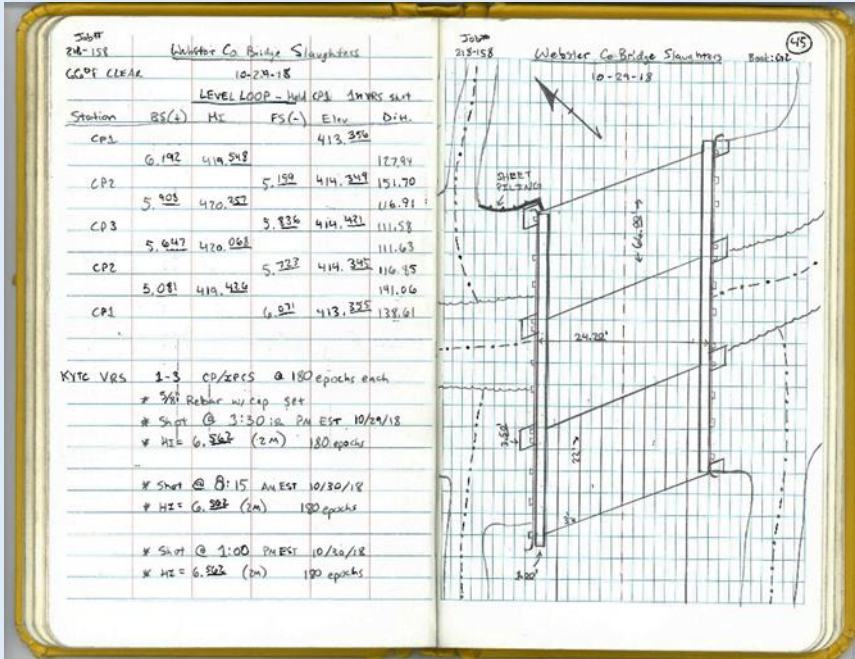 Job#
218-158 Webster Co. Bridge Slaughters
66°F CLEAR 10-29-18
LEVEL LOOP - Hold CP1 1st VRS shot
Station BS(+) HI FS(-) Elev Dist.
CP1 413.356
6.192 419.548 127.94
CP2 5.199 414.349 151.70
5.908 420.257 116.91
CP3 5.836 414.421 111.58
5.647 420.068 111.63
CP2 5.723 414.345 116.85
5.081 419.426 141.06
CP1 6.071 413.355 138.61
KYTC VRS 1-3 CP/XPCS @ 180 epochs each
* 5/8" Rebar w/ cap set
* Shot @ 3:30 PM EST 10/29/18
* HI = 6.562 (2M) 180 epochs
* Shot @ 8:15 AM EST 10/30/18
* HI = 6.562 (2M) 180 epochs
* Shot @ 1:00 PM EST 10/30/18
* HI = 6.562 (2M) 180 epochs
Job#
218-158 Webster Co Bridge Slaughters Book:
45
10-29-18
SHEET
PILING
24.20'
22'